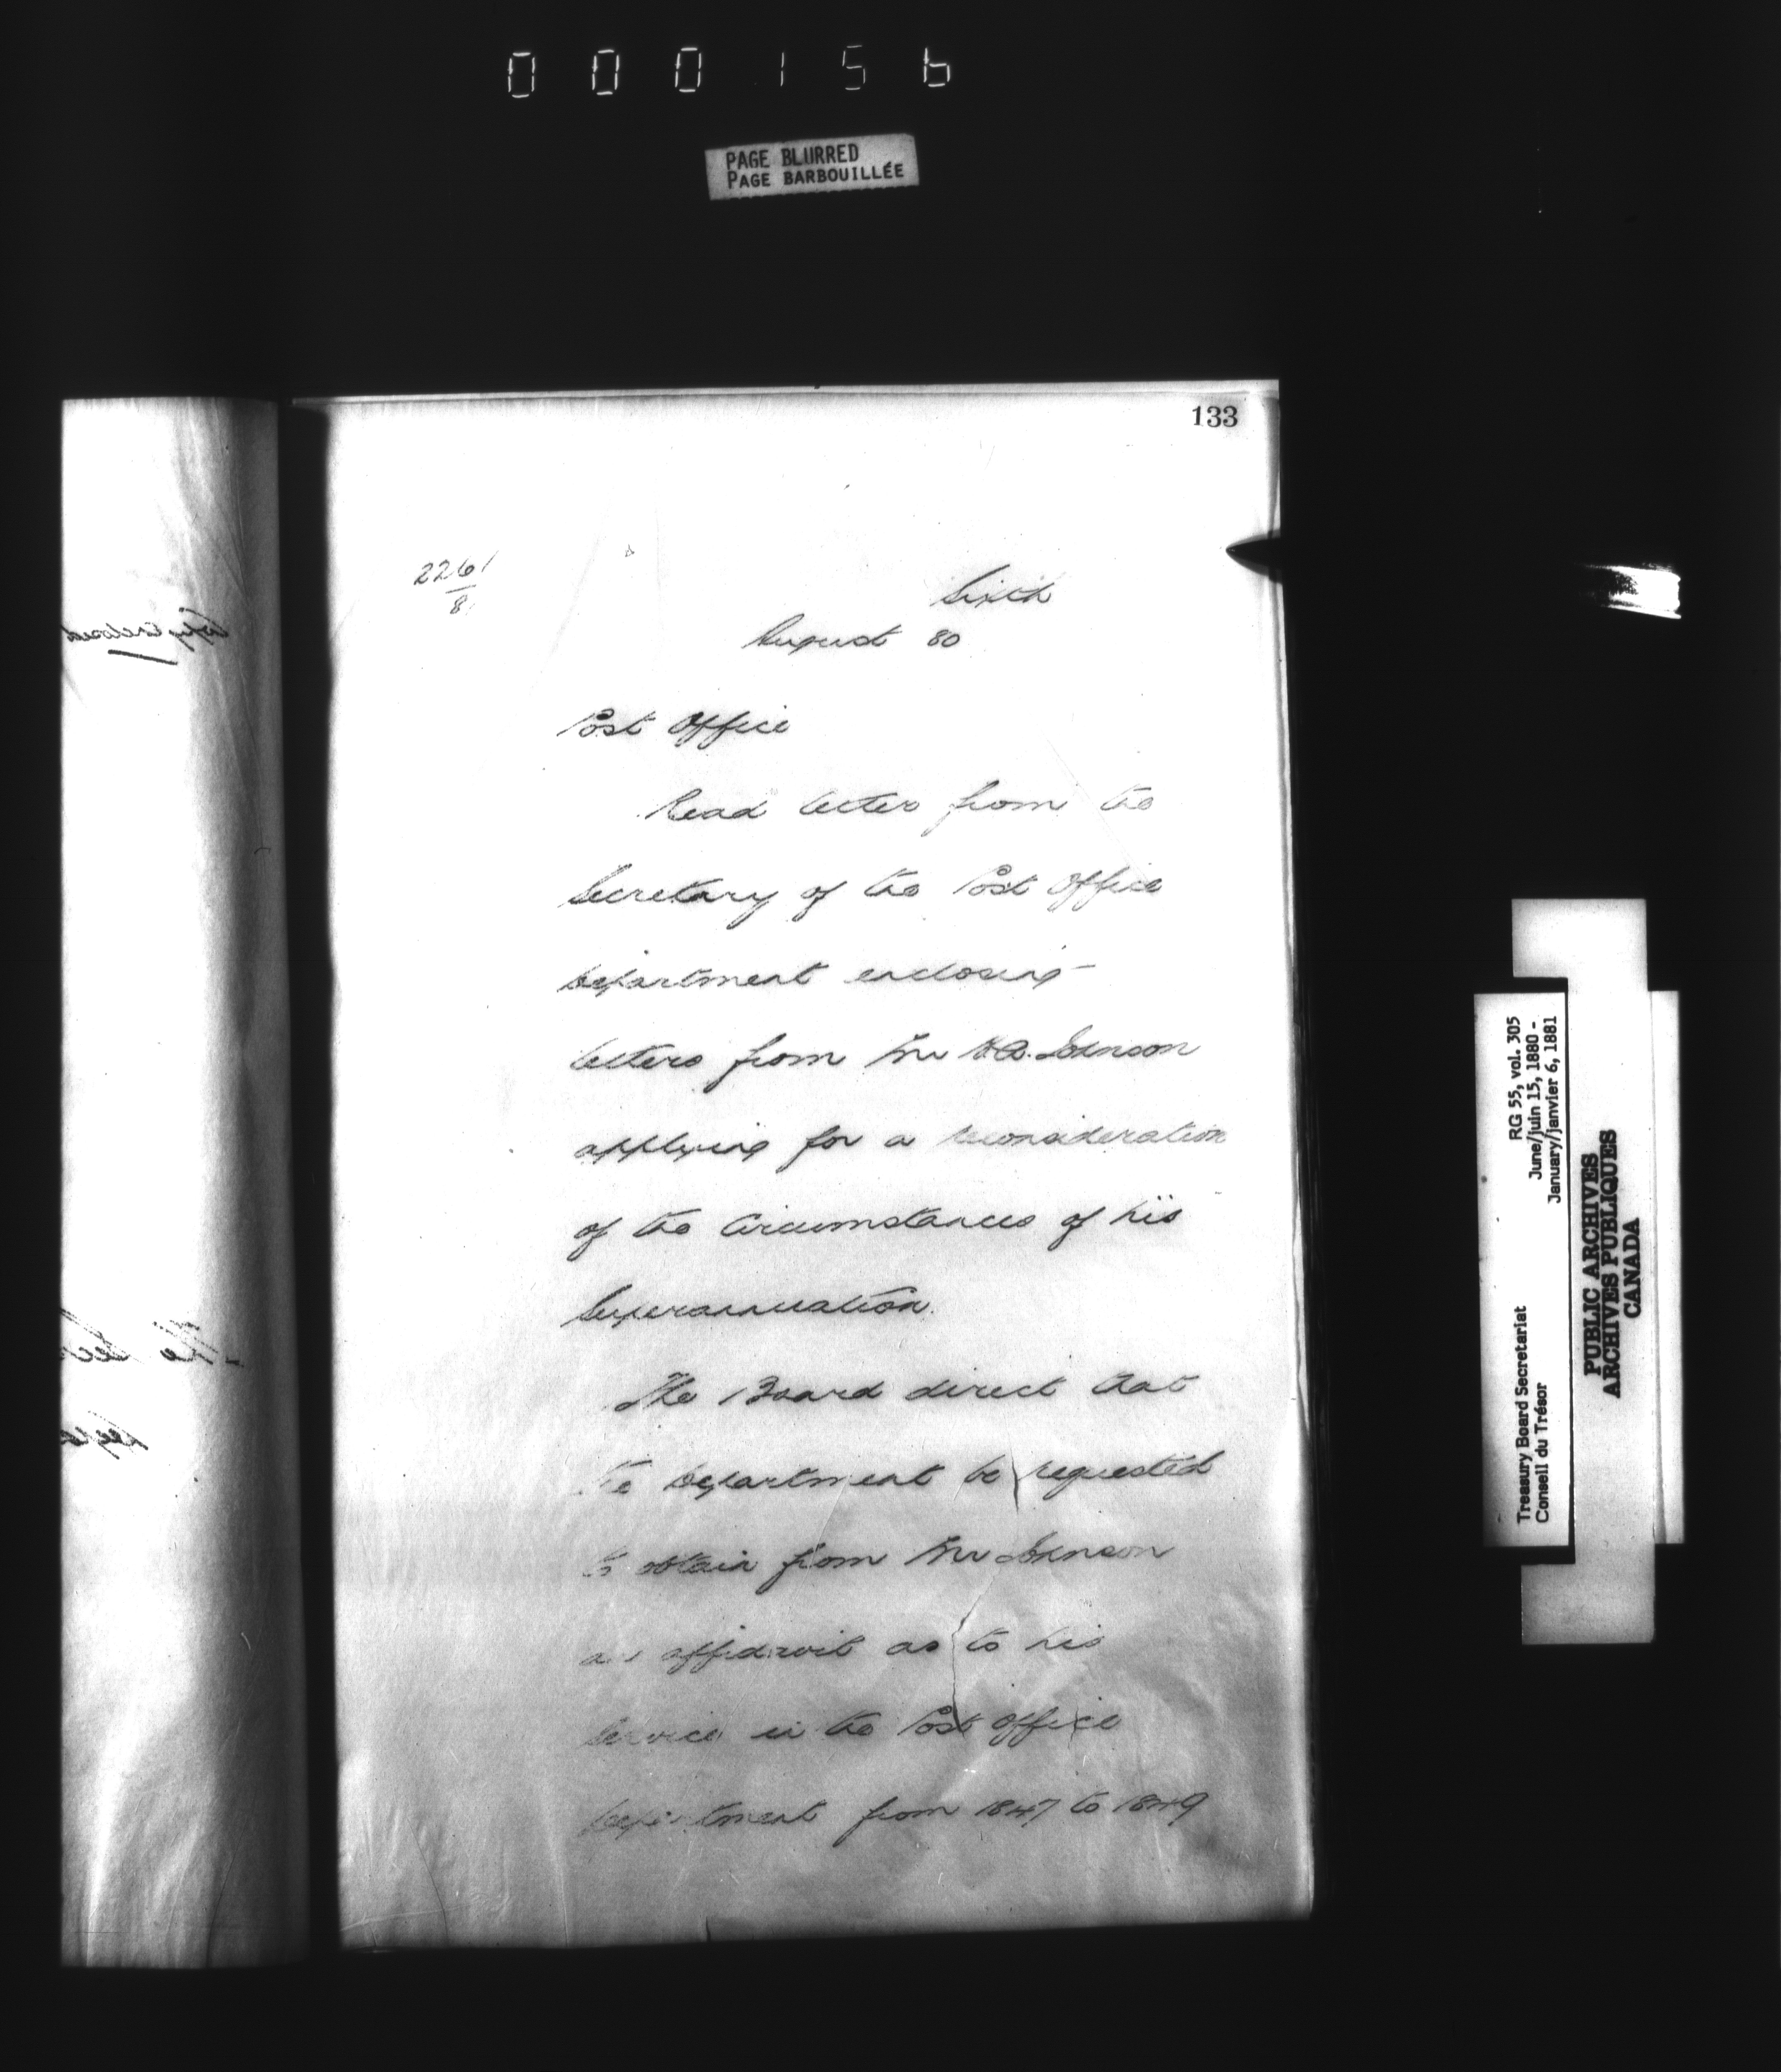 000156
PAGE BLURRED
PAGE BARBOUILLÉE
133
2261
8
Sixth
August 80
Post Office
Read letter from the
Secretary of the Post Office
Department enclosing
letters from Mr Johnson
applying for a reconsideration
of the Circumstances of his
Superannuation.
The Board direct that
the Department be requested
to obtain from Mr Johnson
an affidavit as to his
Service in the Post Office
Department from 1847 to 1849
Copy Enclosed
The
RG 55, vol. 305
June/juin 15, 1880 -
January/janvier 6, 1881
Treasury Board Secretariat
Conseil du Trésor
PUBLIC ARCHIVES
ARCHIVES PUBLIQUES
CANADA